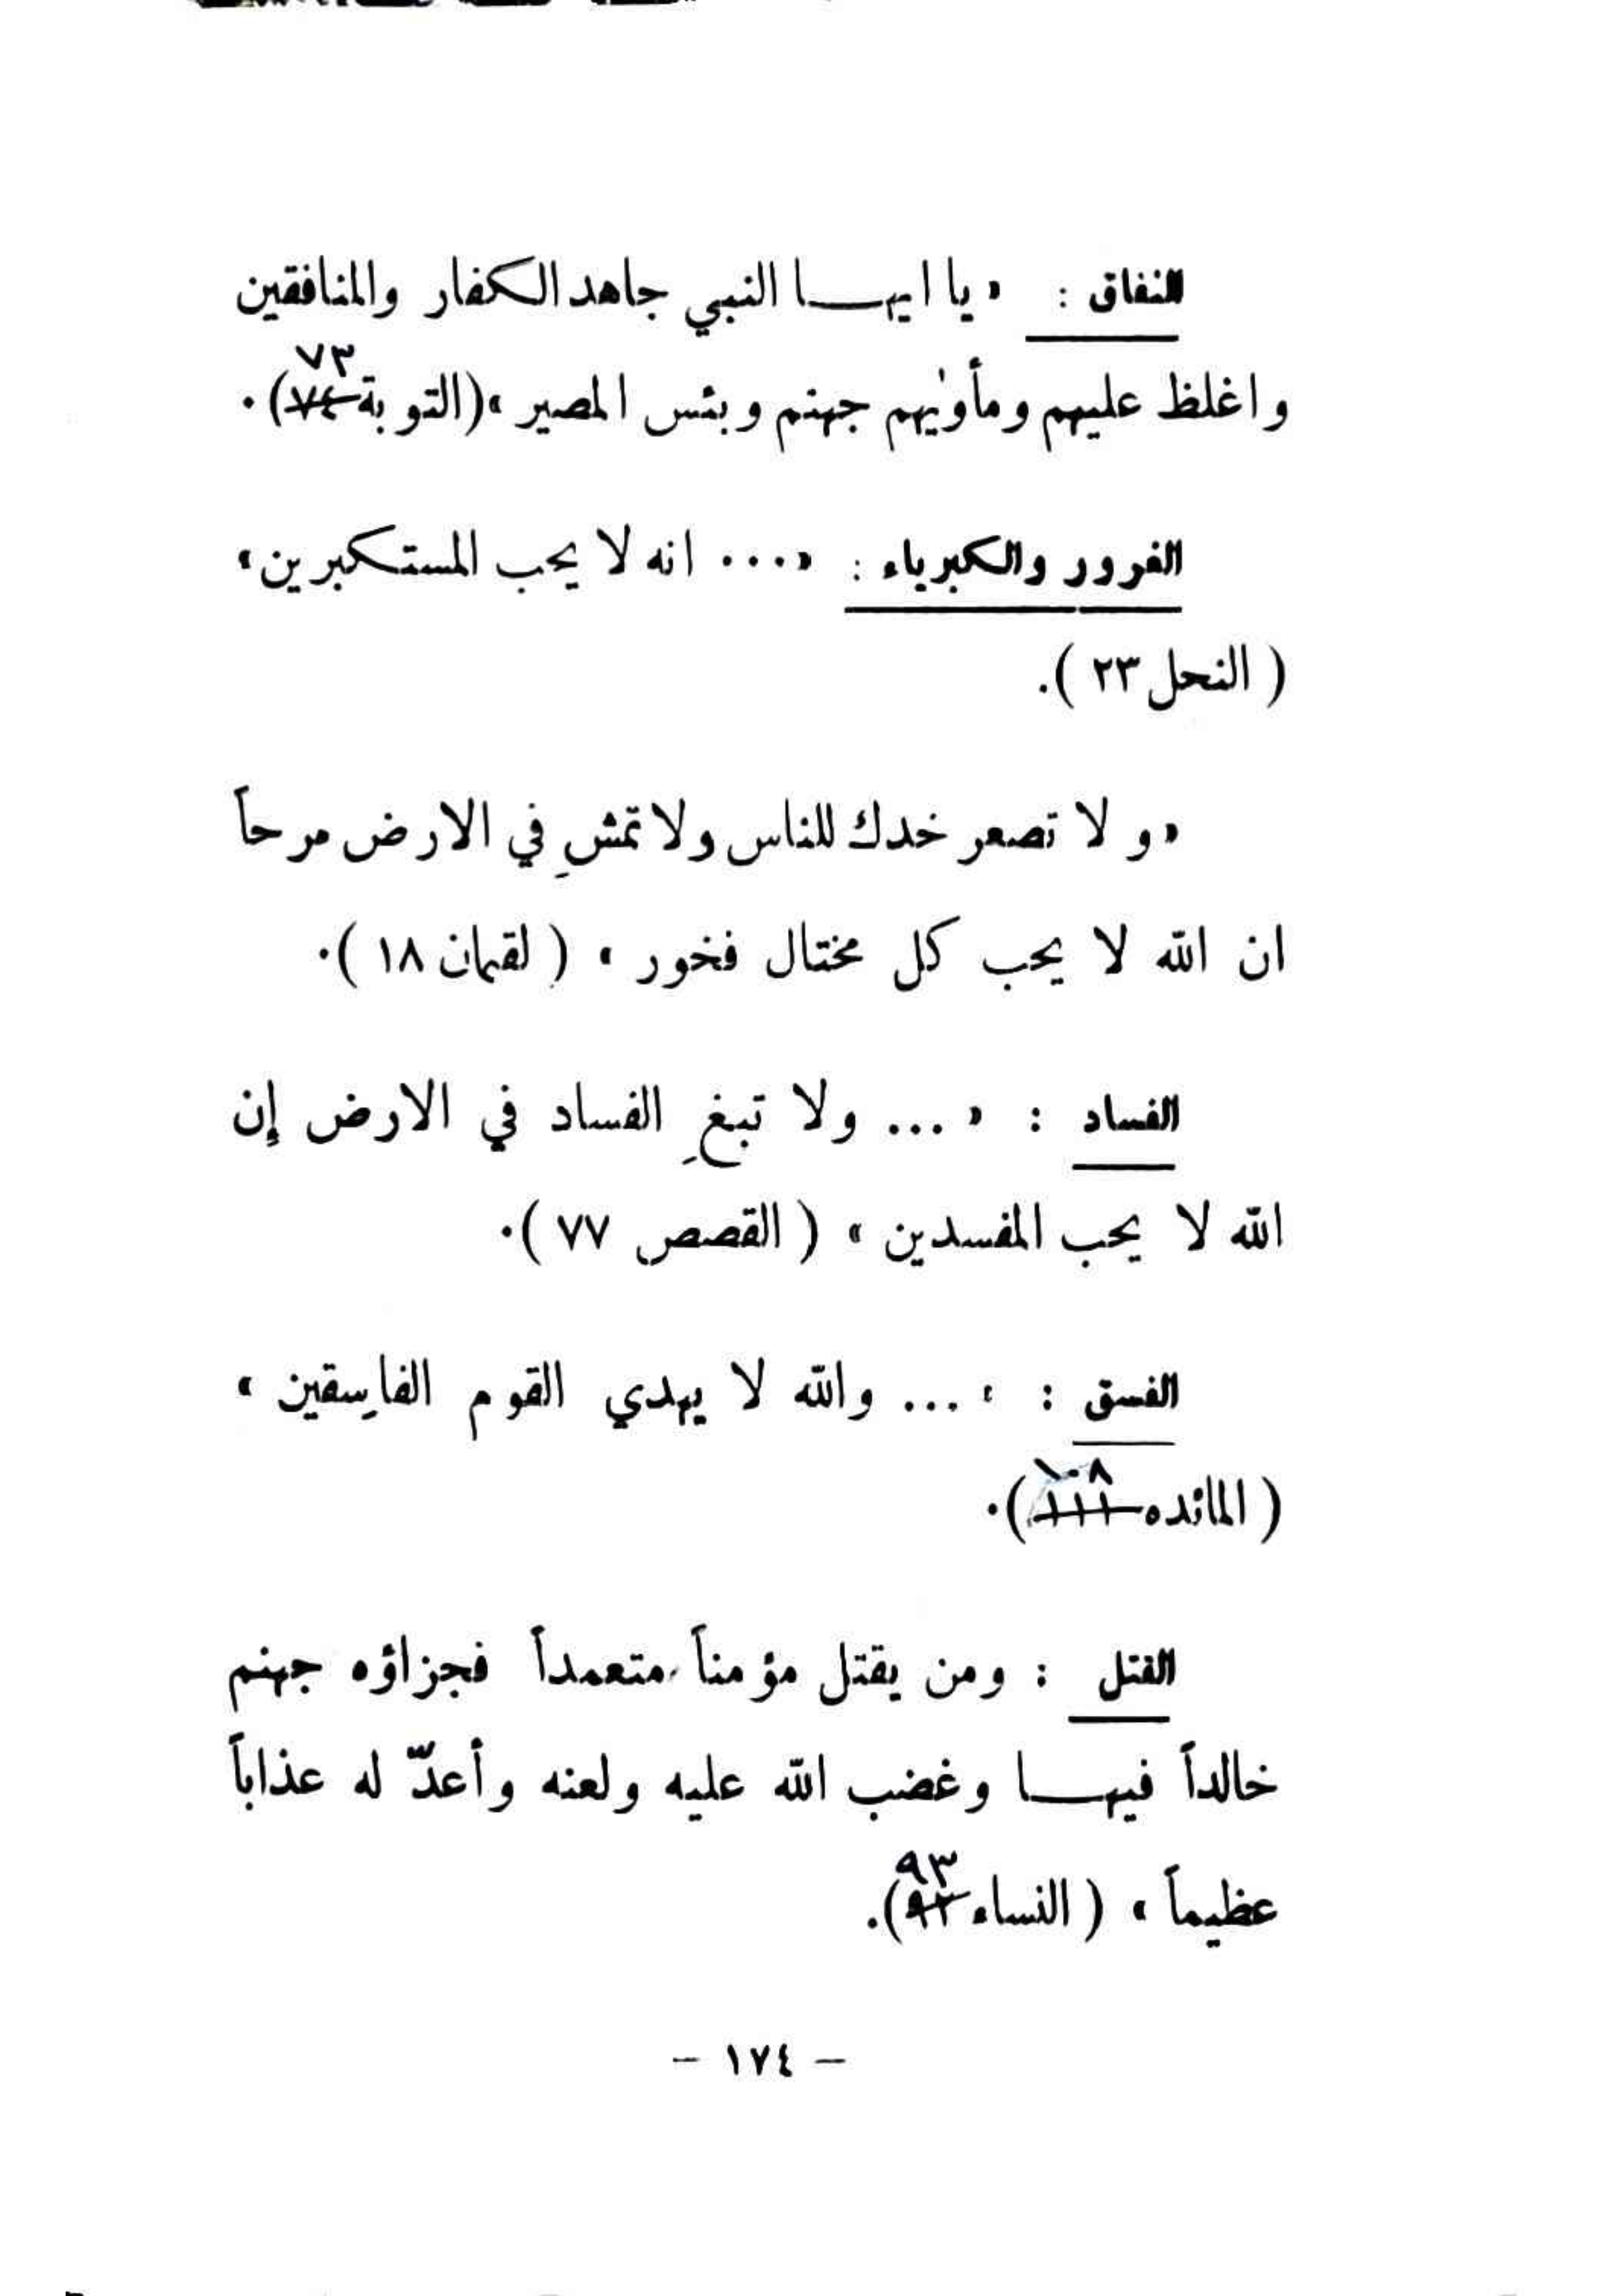 النفاق : « يا ايهـــا النبي جاهد الكفار والمنافقين
٧٣
واغلظ عليهم ومأوٰيهم جهنم وبئس المصير »(التوبة ٧٤).
الغرور والكبرياء : «... انه لا يحب المستكبرين»
( النحل ٢٣ ).
« و لا تصعر خدك للناس ولا تمشِ في الارض مرحاً
ان الله لا يحب كل مختال فخور » ( لقمان ١٨ ).
الفساد : « ... ولا تبغِ الفساد في الارض إن
الله لا يحب المفسدين » ( القصص ٧٧ ).
الفسق : « ... والله لا يهدي القوم الفاسِقين »
١٠٨
( المائده ١١١ ).
القتل : ومن يقتل مؤمناً متعمداً فجزاؤه جهنم
خالداً فيهـــا وغضب الله عليه ولعنه وأعدّ له عذاباً
٩٣
عظيماً » ( النساء ٩٢ ).
– ١٧٤ –